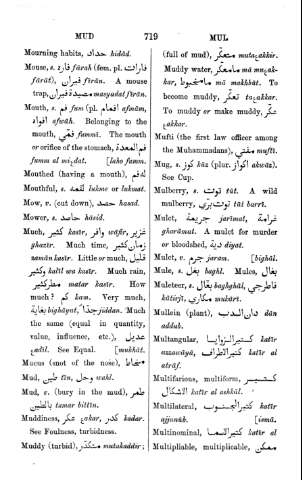 MUD 719 MUL
Mourning habits, حداد hidád.
Mouse, s. فارة fárah (fem. pl. فارات
fárát), فيران fírán. A mouse
trap, مصيدة فيران masyadat fírán.
Month, s. فم fam (pl. افمام afmám,
افواه afwáh. Belonging to the
mouth, فمي fammí. The mouth
or orifice of the stomach, فم المعدة
famm al mi,dat. [luho famm.
Mouthed (having a mouth), له فم
Mouthful, s. لقمة lukme or lukmat.
Mow, v. (cut down), حصد hasad.
Mower, s. حاصد hásid.
Much, كثير kastír, وافر wáfir, غزير
ghazír. Much time, زمان كثير
zamán kastír. Little or much, قليل
وكثير kalíl wa kastír. Much rain,
مطر كثير matar kastír. How
much? كم kam. Very much,
بغاية bigháyat, جدا jiddan. Much
the same (equal in quantity,
value, influence, etc.), عديل
عadíl. See Equal. [mukhát.
Mucus (snot of the nose), مخاط
Mud, طين tín, وحل wahl.
Mud, v. (bury in the mud), طمر
بالطين tamar bittín.
Muddiness, عكر عakar, كدر kadar.
See Foulness, turbidness.
Muddy (turbid), متكدر mutakaddir;
(full of mud), متعكر mutaعakkir.
Muddy water, ما معكر má muعak-
kar, ما مخبوط má makhbút. To
become muddy, تعكر taعakkar.
To muddy or make muddy, عكر
عakkar.
Mufti (the first law officer among
the Muhammadans), مفتي muftí.
Mug, s. كوز kúz (plur. اكواز akwáz).
See Cup.
Mulberry, s. توت tút. A wild
mulberry, توت بري tút barrí.
Mulct, جريمة jarímat, غرامة
gharámat. A mulct for murder
or bloodshed, دية diyat.
Mulct, v. جرم jaram. [bighál.
Mule, s. بغل baghl. Mules, بغال
Muleteer, s. بغال baghghál, قاطرجي
kátirjí, مكاري mukárí.
Mullein (plant), دان الدب dán
addub.
Multangular, كثير الزوايا katír
azzawáyá, كثير الاطراف katír al
atráf.
Multifarious, multiform, كثير
الاشكال katír al ashkál.
Multilateral, كثير الجنوب katír
aljunúb. [ismá.
Multinominal, كثير السما katír al
Multipliable, multiplicable, ممكن